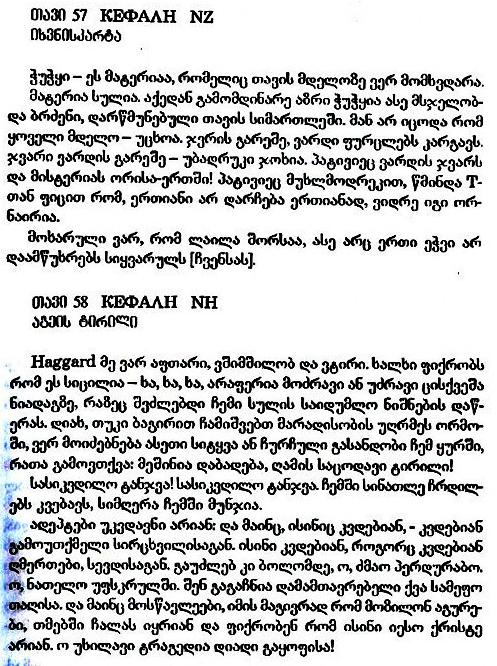 თავი 57 ΚΕΦΑΛΗ ΝΖ
იხვნისკარტა
ჭუჭყი – ეს მატერიაა, რომელიც თავის მდელოზე ვერ მოხვედარა.
მატერია სულია. აქედან გამომდინარე აზრი ჭუჭყია ასე მსჯელობ-
და ბრძენი, დარწმუნებული თავის სიმართლეში. მან არ იცოდა რომ
ყოველი მდელო – უცხოა. ჯერის გარეშე, ვარდი ფურცლებს კარგავს.
ჯვარი ვარდის გარეშე – უბადრუკი ჯოხია. პატივიეც ვარდის ჯვარს
და მისტერიას ორისა-ერთში! პატივიეც მუხლმოდრეკით, წმინდა T-
თან ფიცით რომ, ერთიანი არ დარჩება ერთიანად, ვიდრე იგი ორ-
ნაირია.
მოხარული ვარ, რომ ლაილა შორსაა, ასე არც ერთი ეჭვი არ
დაამწუხრებს სიყვარულს [ჩვენსას].
თავი 58 ΚΕΦΑΛΗ ΝΗ
აგვის ტირილი
Haggard მე ვარ აფთარი, ვშიმშილობ და ვტირი. ხალხი ფიქრობს
რომ ეს სიცილია – ხა, ხა, ხა, არაფერია მოძრავი ან უძრავი ცისქვეშა
ნიადაგზე, რაზეც შეძლებდი ჩემი სულის საიდუმლო ნიშნების დაწ-
ერას. დიახ, თუკი ბაგირით ჩამიშვებთ მარადისობის უღრმეს ორმო-
ში, ვერ მოიძებნება ასეთი სიტყვა ან ჩურჩული გასანდობი ჩემ ყურში,
რათა გამოვთქვა: მეშინია დაბადება, ღამის საცოდავი ტირილი!
სასიკვდილო ტანჯვა! სასიკვდილო ტანჯვა. ჩემში სინათლე ჩრდილ-
ებს კვებავს, სიმღერა ჩემში მუნჯია.
ადეპტები უკვდავნი არიან: და მაინც, ისინიც კვდებიან, - კვდებიან
გამოუთქმელი სირცხვილისაგან. ისინი კვდებიან, როგორც კვდებიან
ღმერთები, სევდისაგან. გაუძლებ კი ბოლომდე, ო, ძმაო პერდურაბო.
ო, ნათელო უფსკრულში. შენ გაგაჩნია დამამთავრებელი ქვა სამეფო
თაღისა. და მაინც მოსწავლეები, იმის მაგივრად რომ მოზილონ აგურე-
ბი, თმებში ჩალას იყრიან და ფიქრობენ რომ ისინი იესო ქრისტე
არიან. ო უხილავი ტრაგედია დიადი გაყოფისა!